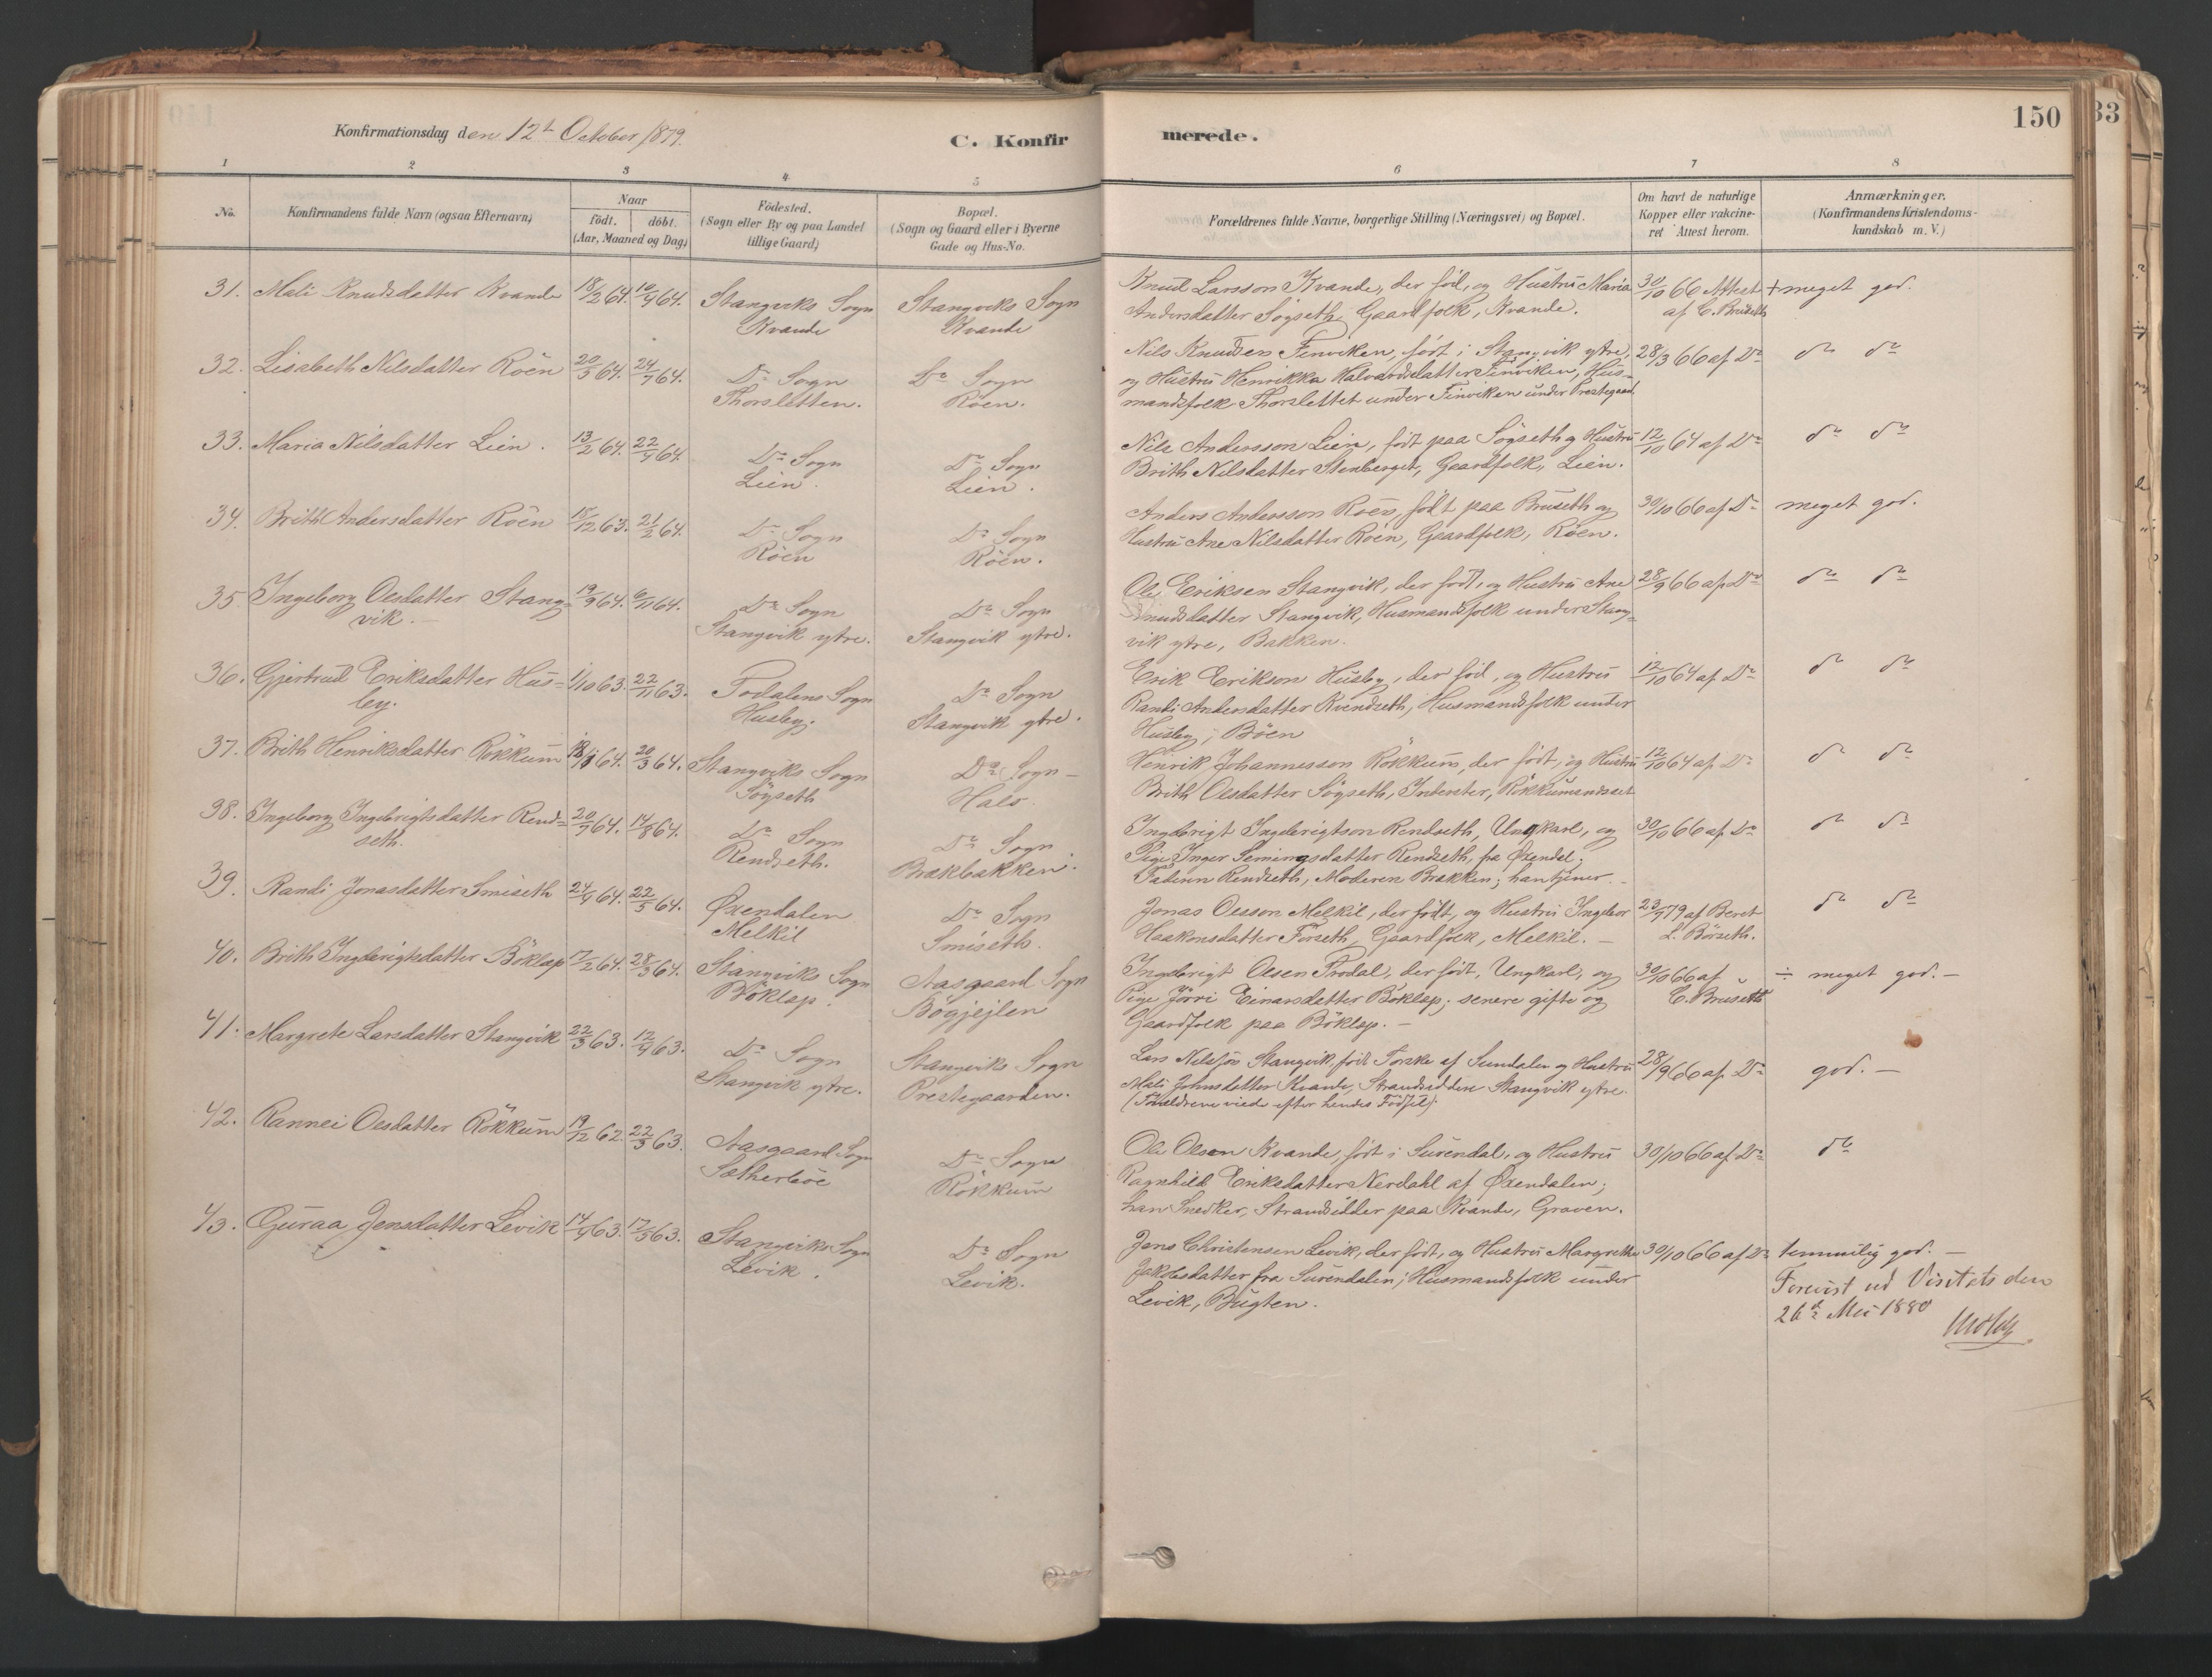 150
33
Konfirmationsdag den 12te October 1879.
C. Konfirmerede.
1 2 3 4 5 6 7 8
No.
Konfirmandens fulde Navn (ogsaa Efternavn)
Naar
födt. döbt.
(Aar, Maaned og Dag)
Födested.
(Sogn eller By og paa Landet
tillige Gaard)
Bopæl.
(Sogn og Gaard eller i Byerne
Gade og Hus-No.
Forældrenes fulde Navne, borgerlige Stilling (Næringsvei) og Bopæl.
Om havt de naturlige
Kopper eller vakcine-
ret Attest herom.
Anmærkninger.
(Konfirmandens Kristendoms-
kundskab m. V.)
31. Mali Knudsdatter Kvande 18/2 64. 10/4 64. Stangviks Sogn Stangviks Sogn
Kvande Kvande
Knud Larsson Kvande, der föd, og Hustru Maria 30/10 66 Attest + meget god.
Andersdatter Sögseth, Gaardfolk, Kvande. af C. Bruseth
32. Lisabeth Nilsdatter Röen 20/5 64. 24/7 64. Do Sogn Do Sogn
Thorsletten. Röen.
Nils Knudsen Finviken, født i Stangvik ytre, 28/3 66 af Do do do
og Hustru Henrikka Halvardsdatter Finviken, Hus-
mandsfolk Thorslettet under Finviken under Prestegaard.
33. Maria Nilsdatter Lien. 13/2 64. 22/4 64. Do Sogn Do Sogn
Lien. Lien.
Nils Andersson Lien, født paa Sögseth og Hustru 12/10 64 af Do do do
Brith Nilsdatter Stenberget, Gaardfolk, Lien.
34. Brith Andersdatter Röen 15/12 63. 21/2 64. Do Sogn Do Sogn
Röen Röen.
Anders Andersson Röen, født paa Bruseth og 30/10 66 af Do meget god.
Hustru Ane Nilsdatter Röen, Gaardfolk, Röen.
35. Ingeborg Olesdatter Stang- 19/9 64. 6/11 64. Do Sogn Do Sogn
vik. Stangvik ytre. Stangvik ytre.
Ole Eriksen Stangvik, der født, og Hustru Ane 28/9 66 af Do do do
Knudsdatter Stangvik, Husmandsfolk under Stang-
vik ytre, Bakken.
36. Gjertrud Eriksdatter Hus- 1/10 63. 22/11 63. Todalens Sogn Do Sogn
by. Husby. Stangvik ytre.
Erik Erikson Husby, der föd, og Hustru 12/10 64 af Do do do
Randi Andersdatter Kvendseth, Husmandsfolk under
Husby, Böen
37. Brith Henriksdatter Rökkum 18/1 64. 20/3 64. Stangviks Sogn Do Sogn
Sögseth Hals.
Henrik Johannesson Rökkum, der født, og Hustru 12/10 64 af Do do do
Brith Olesdatter Sögseth, Inderster, Rökkumandset
38. Ingeborg Ingebrigtsdatter Rend- 20/7 64. 14/8 64. Do Sogn Do Sogn
seth. Rendseth. Brækbakken.
Ingebrigt Ingebrigtson Rendseth, Ungkarl, og 30/10 66 af Do do do
Pige Inger Semingsdatter Rendseth, fra Øxendal;
Faderen Rendseth, Moderen Brækken; han tjener.
39. Randi Jonasdatter Smiseth 24/4 64. 22/5 64. Øxendalen Do Sogn
Melkil Smiseth.
Jonas Olsson Melkil, der født, og Hustru Ingebor 23/9 79 af Beret do do
Haakonsdatter Forseth, Gaardfolk, Melkil. L. Börseth.
40. Brith Ingebrigtsdatter Böklap 17/2 64. 28/3 64. Stangviks Sogn Aasgaard Sogn
Böklap. Bögjejlen
Ingebrigt Olsen Prodal, der født, Ungkarl, og 30/10 66 af ÷ meget god.
Pige Jörri Einarsdatter Böklap; senere gifte og C. Bruseth
Gaardfolk paa Böklap.
41. Margrete Larsdatter Stangvik 22/3 63. 12/4 63. Do Sogn Stangviks Sogn
Stangvik ytre. Prestegaarden.
Lars Nilssön Stangvik, født Torske af Sundalen og Hustru 28/9 66 af Do god.
Mali Johnsdatter Kvande, Strandsiddere Stangvik ytre.
(Forældrene viede efter hendes Fødsel).
42. Rannei Olesdatter Rökkum 19/12 62. 22/3 63. Aasgaard Sogn Do Sogn
Sætherböe Rökkum
Ole Olsen Kvande, født i Surendal, og Hustru 30/10 66 af Do do
Ragnhild Eriksdatter Nerdahl af Øxendalen;
han Snedker, Strandsidder paa Kvande, Graven.
43. Guraa Jensdatter Levik 14/4 63. 17/5 63. Stangviks Sogn Do Sogn
Levik. Levik.
Jens Christensen Levik, der født, og Hustru Margrethe 30/10 66 af Do temmelig god.
Jakobsdatter fra Surendalen; Husmandsfolk under
Levik, Bugten.
Forevist ved Visitats den
26de Mai 1880